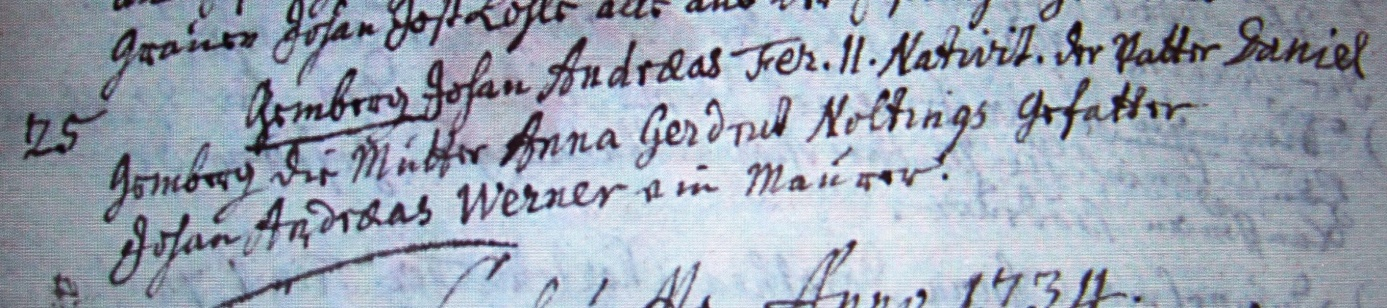 Johan Jost
25 Gemberg Johan Andræas Fer. II. Nativit. der Vatter Daniel
Gemberg die Mutter Anna Gerdrut Noltings Gefatter
Johan Andræas Werner ein Maurer.
Anno 1734.